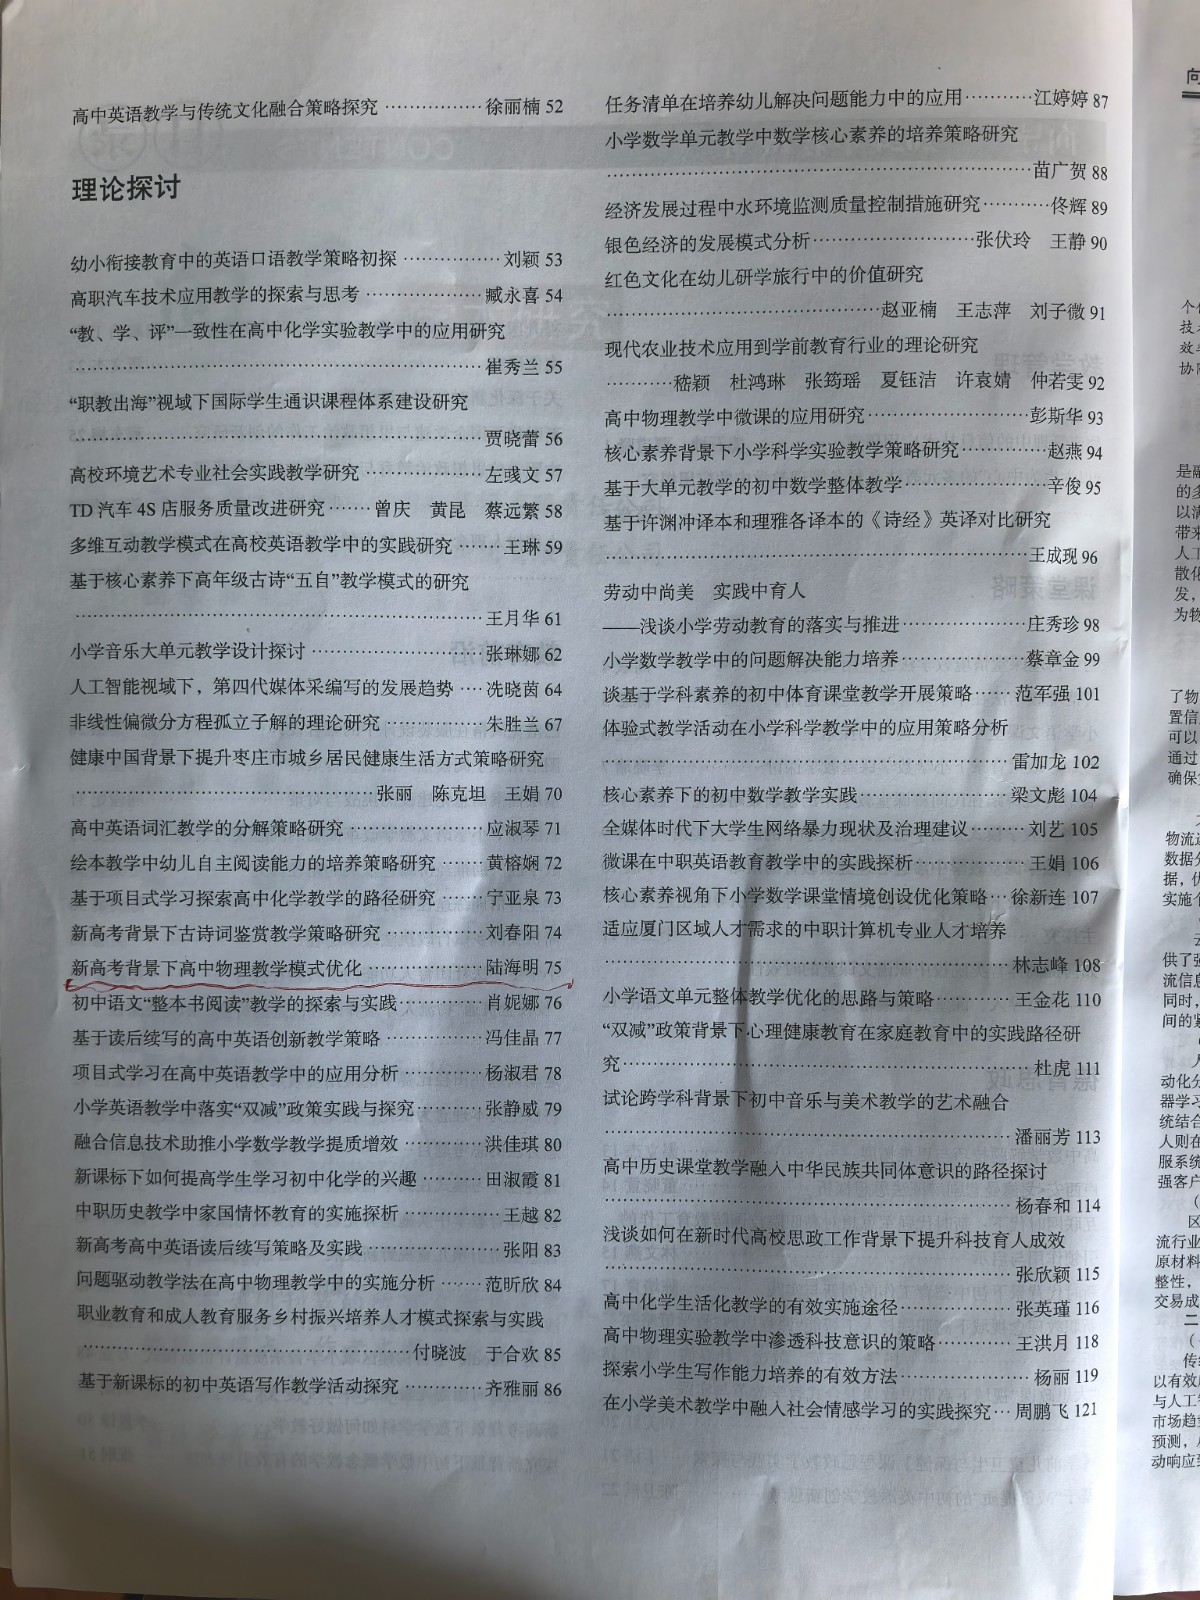 高中英语教学与传统文化融合策略探究 ················ 徐丽楠 52
理论探讨
幼小衔接教育中的英语口语教学策略初探 ················ 刘颖 53
高职汽车技术应用教学的探索与思考 ··················· 臧永喜 54
“教、学、评”一致性在高中化学实验教学中的应用研究
······································ 崔秀兰 55
“职教出海”视域下国际学生通识课程体系建设研究
······································ 贾晓蕾 56
高校环境艺术专业社会实践教学研究 ··················· 左彧文 57
TD 汽车 4S 店服务质量改进研究 ······· 曾庆 黄昆 蔡远繁 58
多维互动教学模式在高校英语教学中的实践研究 ······· 王琳 59
基于核心素养下高年级古诗“五自”教学模式的研究
······································ 王月华 61
小学音乐大单元教学设计探讨 ························· 张琳娜 62
人工智能视域下，第四代媒体采编写的发展趋势 ···· 冼晓茵 64
非线性偏微分方程孤立子解的理论研究 ················ 朱胜兰 67
健康中国背景下提升枣庄市城乡居民健康生活方式策略研究
······························ 张丽 陈克坦 王娟 70
高中英语词汇教学的分解策略研究 ····················· 应淑琴 71
绘本教学中幼儿自主阅读能力的培养策略研究 ······· 黄榕娴 72
基于项目式学习探索高中化学教学的路径研究 ······· 宁亚泉 73
新高考背景下古诗词鉴赏教学策略研究 ················ 刘春阳 74
新高考背景下高中物理教学模式优化 ··················· 陆海明 75
初中语文“整本书阅读”教学的探索与实践 ············· 肖妮娜 76
基于读后续写的高中英语创新教学策略 ················ 冯佳晶 77
项目式学习在高中英语教学中的应用分析 ············· 杨淑君 78
小学英语教学中落实“双减”政策实践与探究 ·········· 张静威 79
融合信息技术助推小学数学教学提质增效 ············· 洪佳琪 80
新课标下如何提高学生学习初中化学的兴趣 ·········· 田淑霞 81
中职历史教学中家国情怀教育的实施探析 ············· 王越 82
新高考高中英语读后续写策略及实践 ··················· 张阳 83
问题驱动教学法在高中物理教学中的实施分析 ······· 范昕欣 84
职业教育和成人教育服务乡村振兴培养人才模式探索与实践
······························ 付晓波 于合欢 85
基于新课标的初中英语写作教学活动探究 ············· 齐雅丽 86
任务清单在培养幼儿解决问题能力中的应用 ·········· 江婷婷 87
小学数学单元教学中数学核心素养的培养策略研究
······································ 苗广贺 88
经济发展过程中水环境监测质量控制措施研究 ·········· 佟辉 89
银色经济的发展模式分析 ······················· 张伏玲 王静 90
红色文化在幼儿研学旅行中的价值研究
························· 赵亚楠 王志萍 刘子微 91
现代农业技术应用到学前教育行业的理论研究
·········· 嵇颖 杜鸿琳 张筠瑶 夏钰洁 许袁婧 仲若雯 92
高中物理教学中微课的应用研究 ······················ 彭斯华 93
核心素养背景下小学科学实验教学策略研究 ············ 赵燕 94
基于大单元教学的初中数学整体教学 ··················· 辛俊 95
基于许渊冲译本和理雅各译本的《诗经》英译对比研究
······································ 王成现 96
劳动中尚美 实践中育人
——浅谈小学劳动教育的落实与推进 ··················· 庄秀珍 98
小学数学教学中的问题解决能力培养 ··················· 蔡章金 99
谈基于学科素养的初中体育课堂教学开展策略 ······ 范军强 101
体验式教学活动在小学科学教学中的应用策略分析
······································ 雷加龙 102
核心素养下的初中数学教学实践 ······················ 梁文彪 104
全媒体时代下大学生网络暴力现状及治理建议 ········· 刘艺 105
微课在中职英语教育教学中的实践探析 ················ 王娟 106
核心素养视角下小学数学课堂情境创设优化策略 ··· 徐新连 107
适应厦门区域人才需求的中职计算机专业人才培养
······································ 林志峰 108
小学语文单元整体教学优化的思路与策略 ············ 王金花 110
“双减”政策背景下心理健康教育在家庭教育中的实践路径研
究 ······································ 杜虎 111
试论跨学科背景下初中音乐与美术教学的艺术融合
······································ 潘丽芳 113
高中历史课堂教学融入中华民族共同体意识的路径探讨
······································ 杨春和 114
浅谈如何在新时代高校思政工作背景下提升科技育人成效
······································ 张欣颖 115
高中化学生活化教学的有效实施途径 ·················· 张英瑾 116
高中物理实验教学中渗透科技意识的策略 ············ 王洪月 118
探索小学生写作能力培养的有效方法 ··················· 杨丽 119
在小学美术教学中融入社会情感学习的实践探究 ··· 周鹏飞 121